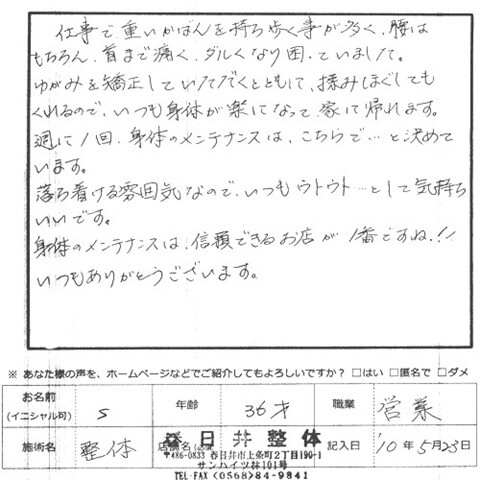 仕事で、重いかばんを持ち歩く事が多く、腰は
もちろん、首まで痛く、ダルくなり困っていました。
ゆがみを矯正していただくとともに、揉みほぐしても
くれるので、いつも身体が楽になって、家に帰れます。
週に1回、身体のメンテナンスは、こちらで…と決めて
います。
落ち着ける雰囲気なので、いつもウトウト…として気持ち
いいです。
身体のメンテナンスは、信頼できるお店が1番ですね!!
いつもありがとうございます。
※ あなた様の声を、ホームページなどでご紹介してもよろしいですか? □はい □匿名で □ダメ
お名前
(イニシャル可) S 年齢 36才 職業 営業
施術名 整体 店舗名 春日井整体 記入日 '10年5月23日
〒486-0833 春日井市上条町2丁目190-1
サンハイツ林101号
TEL・FAX (0568)84-9841